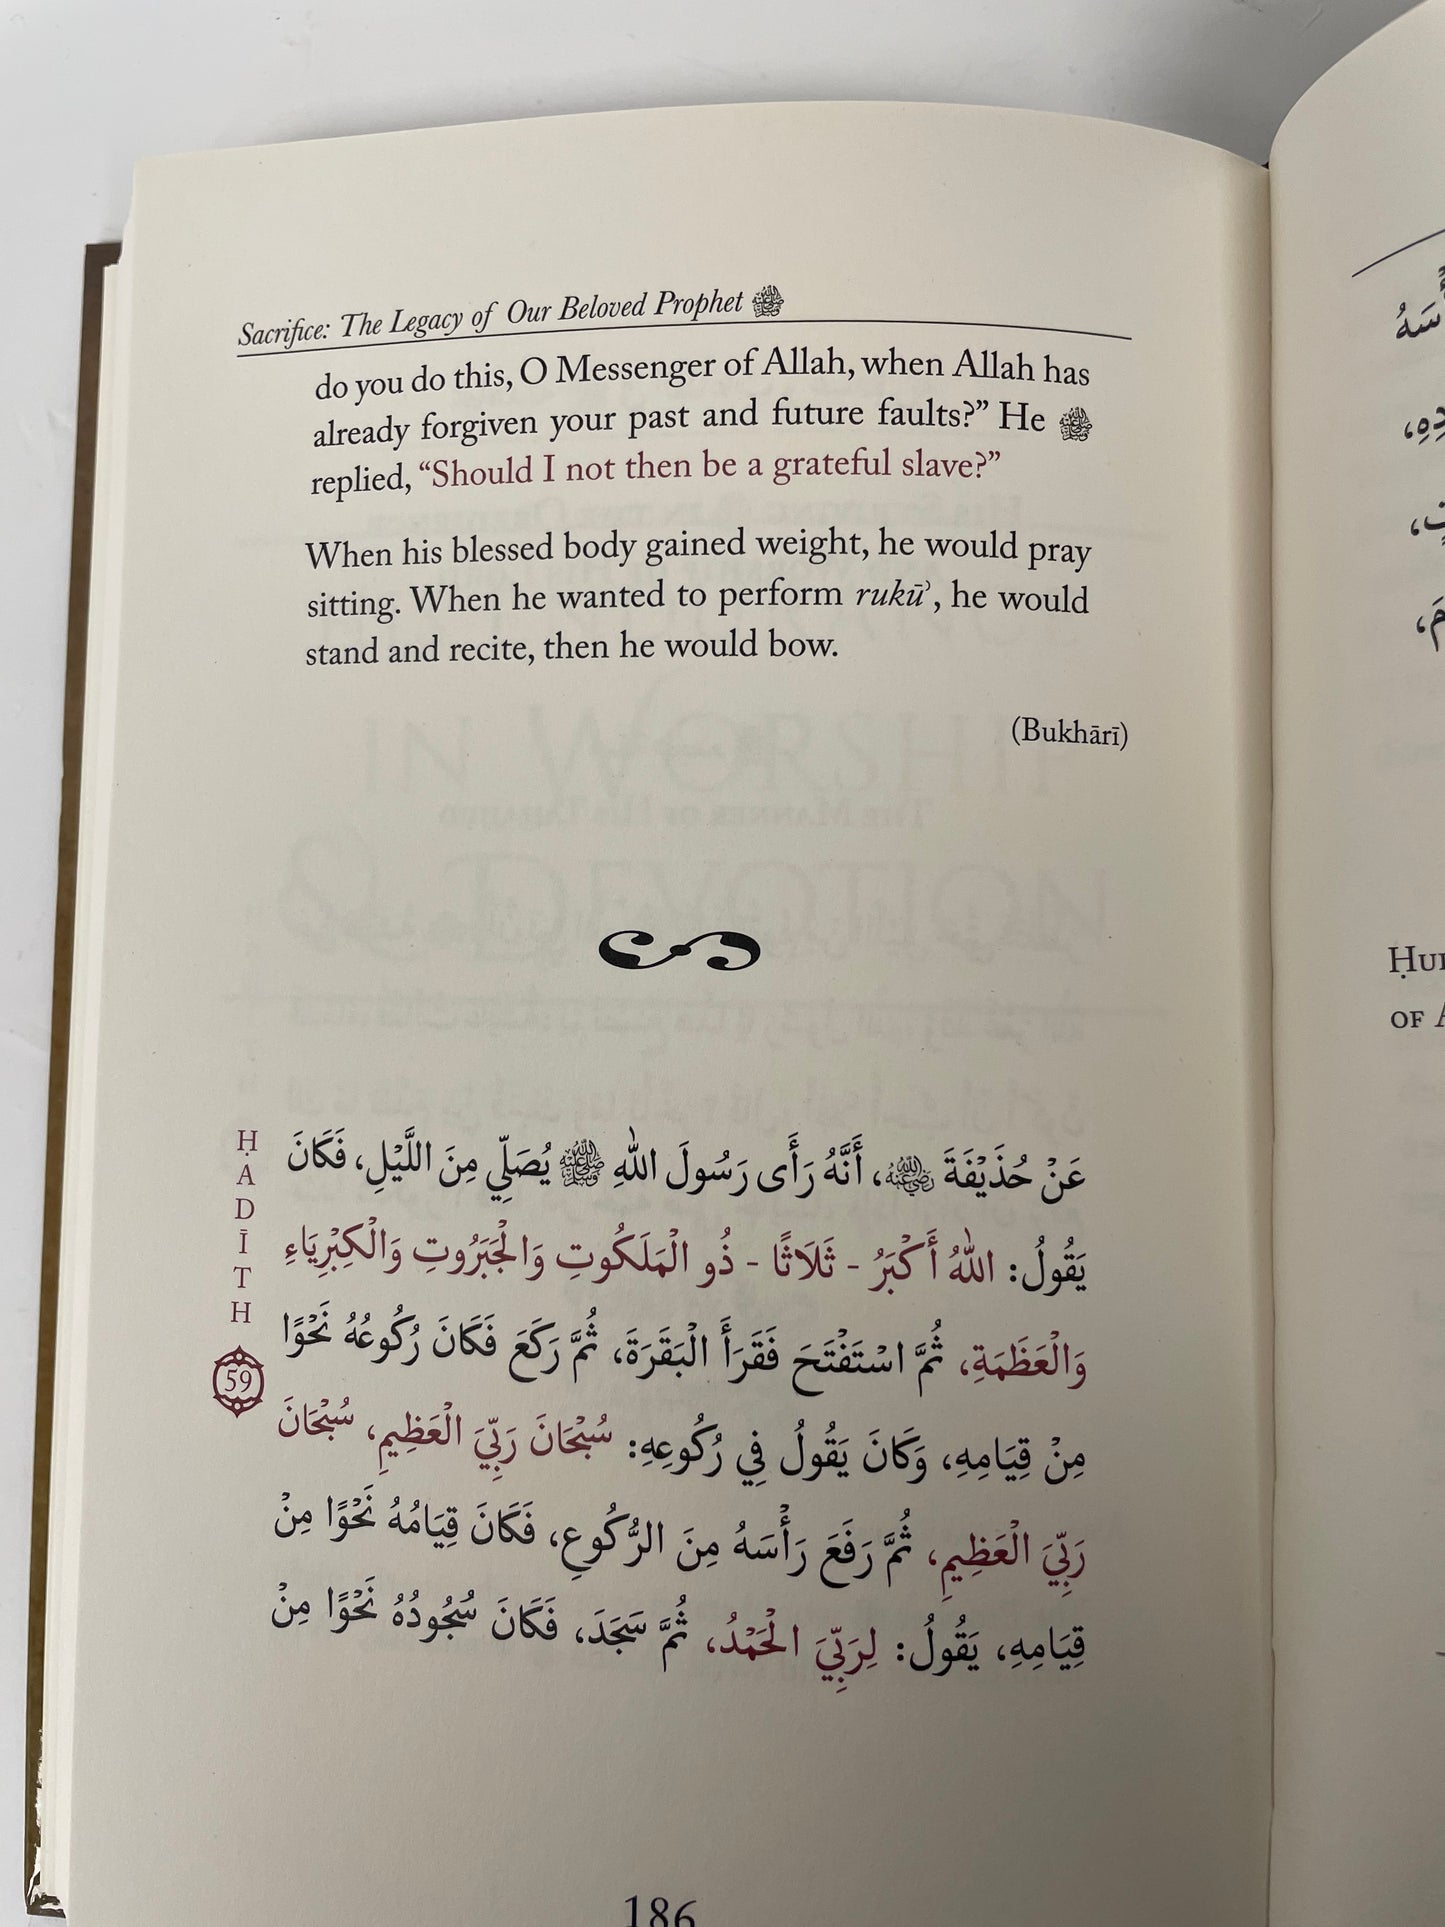 Sacrifice: The Legacy of Our Beloved Prophet ﷺ
do you do this, O Messenger of Allah, when Allah has
already forgiven your past and future faults?” He ﷺ
replied, “Should I not then be a grateful slave?”
When his blessed body gained weight, he would pray
sitting. When he wanted to perform rukūʾ, he would
stand and recite, then he would bow.
(Bukhārī)
ḤADĪTH
59
عَنْ حُذَيْفَةَ رضي الله عنه، أَنَّهُ رَأَى رَسُولَ اللهِ ﷺ يُصَلِّي مِنَ اللَّيْلِ، فَكَانَ
يَقُولُ: اللهُ أَكْبَرُ - ثَلَاثًا - ذُو الْمَلَكُوتِ وَالْجَبَرُوتِ وَالْكِبْرِيَاءِ
وَالْعَظَمَةِ، ثُمَّ اسْتَفْتَحَ فَقَرَأَ الْبَقَرَةَ، ثُمَّ رَكَعَ فَكَانَ رُكُوعُهُ نَحْوًا
مِنْ قِيَامِهِ، وَكَانَ يَقُولُ فِي رُكُوعِهِ: سُبْحَانَ رَبِّيَ الْعَظِيمِ، سُبْحَانَ
رَبِّيَ الْعَظِيمِ، ثُمَّ رَفَعَ رَأْسَهُ مِنَ الرُّكُوعِ، فَكَانَ قِيَامُهُ نَحْوًا مِنْ
قِيَامِهِ، يَقُولُ: لِرَبِّيَ الْحَمْدُ، ثُمَّ سَجَدَ، فَكَانَ سُجُودُهُ نَحْوًا مِنْ
186
OF